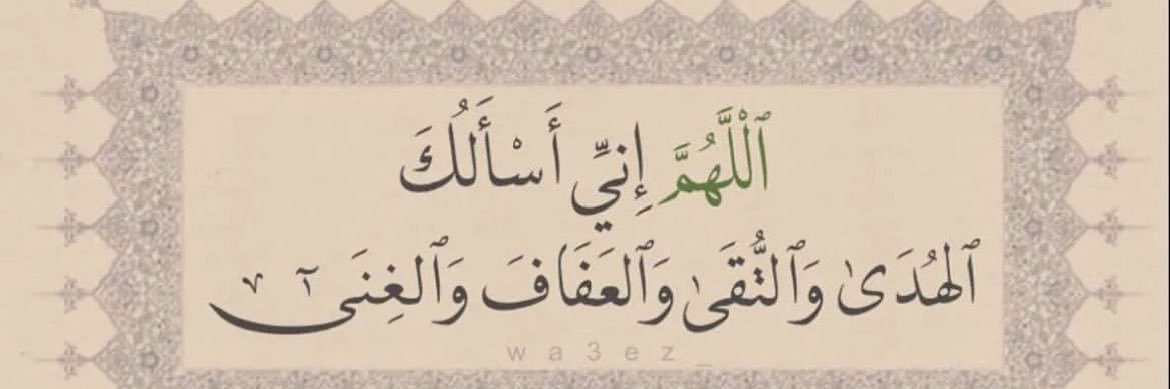 ٱللَّهُمَّ إِنِّي أَسْأَلُكَ
ٱلهُدَىٰ وَٱلتُّقَىٰ وَٱلعَفَافَ وَٱلغِنَىٰ
wa3ez_